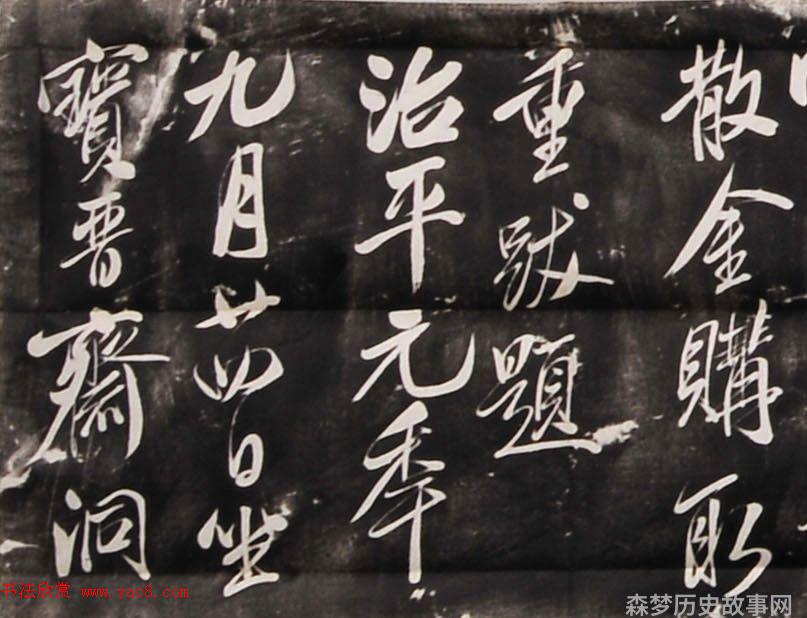 散金購取
重跋題
治平元秊
九月廿四日坐
寶晋齋洞
书法欣赏 www.yac8.com
森梦历史故事网